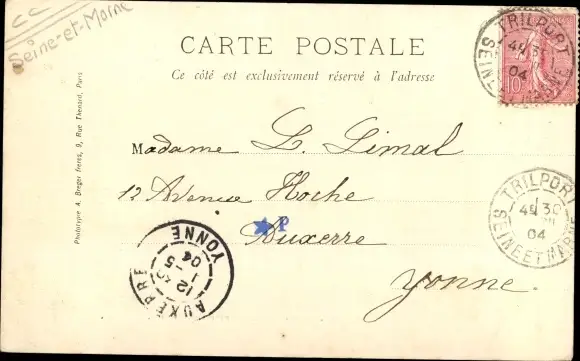 CC
Seine-et-Marne
CARTE POSTALE
Ce côté est exclusivement réservé à l'adresse
Phototypie A. Breger frères, 9, Rue Thénard, Paris
TRILPORT
04
SEINE ET MARNE
10
Madame L. Limal
12 Avenue Hoche
P
Auxerre
Yonne.
TRILPORT
04
SEINE ET MARNE
AUXERRE
12
1-5
04
YONNE